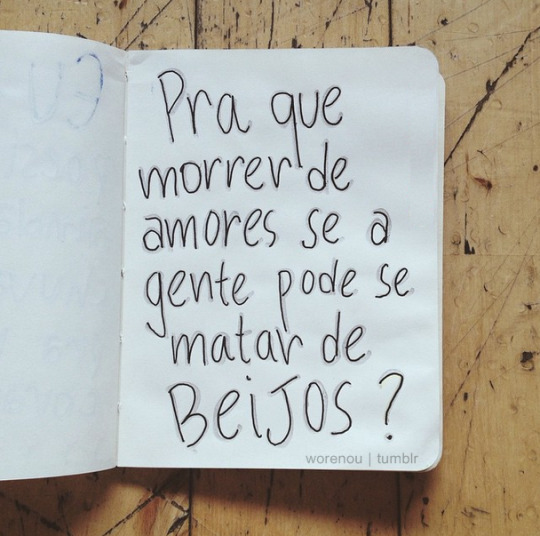 Pra que
morrer de
amores se a
gente pode se
matar de
BeiJOS?
worenou | tumblr